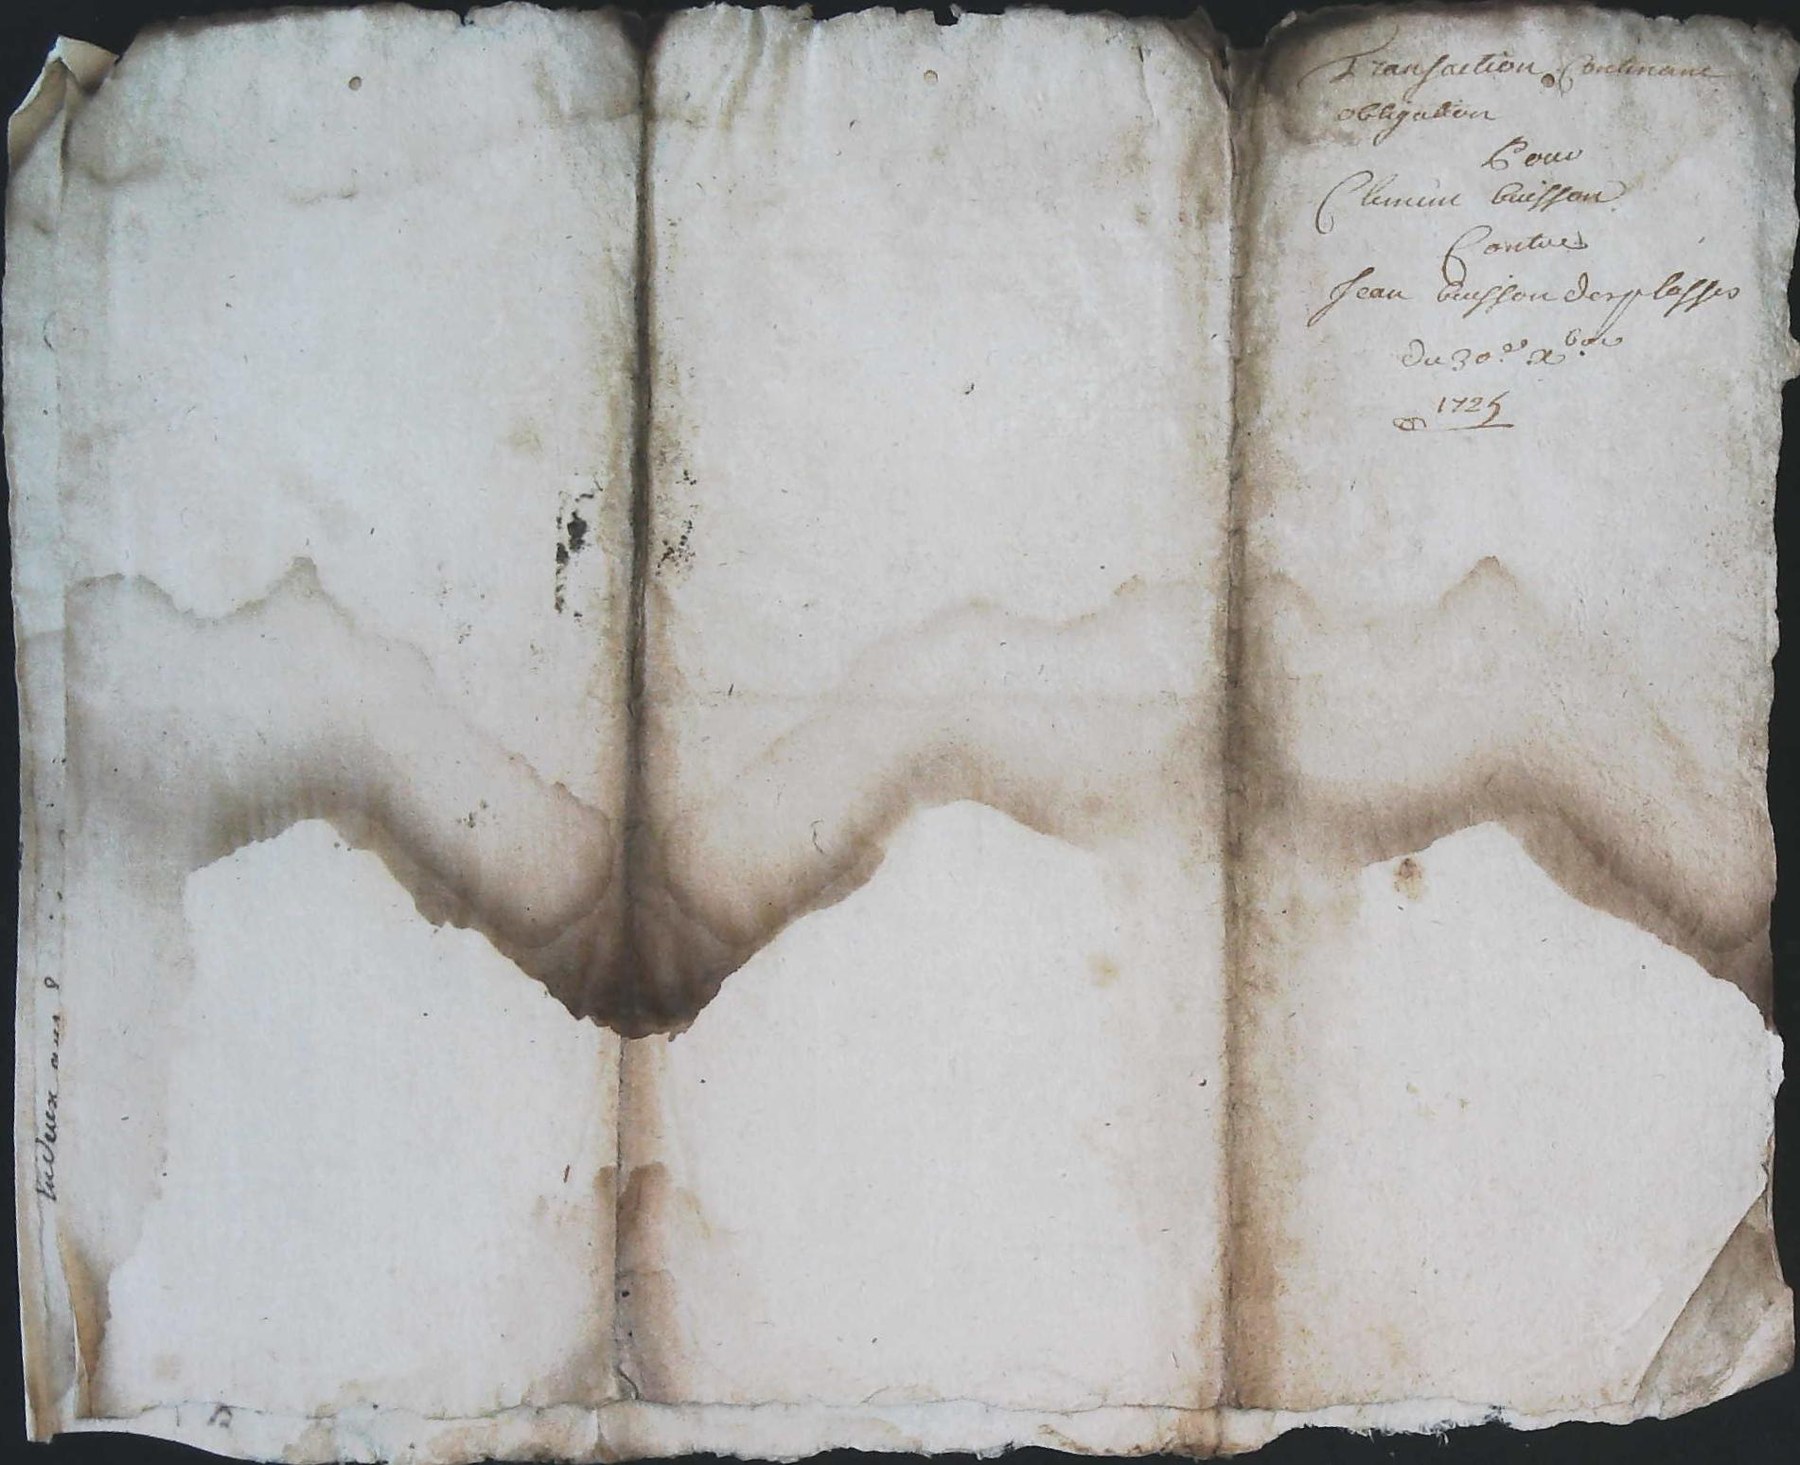 Transaction Contenant
obligation
Pour
Clement buisson
Contre
Jean buisson desplasses
du 30.e xbre
1725